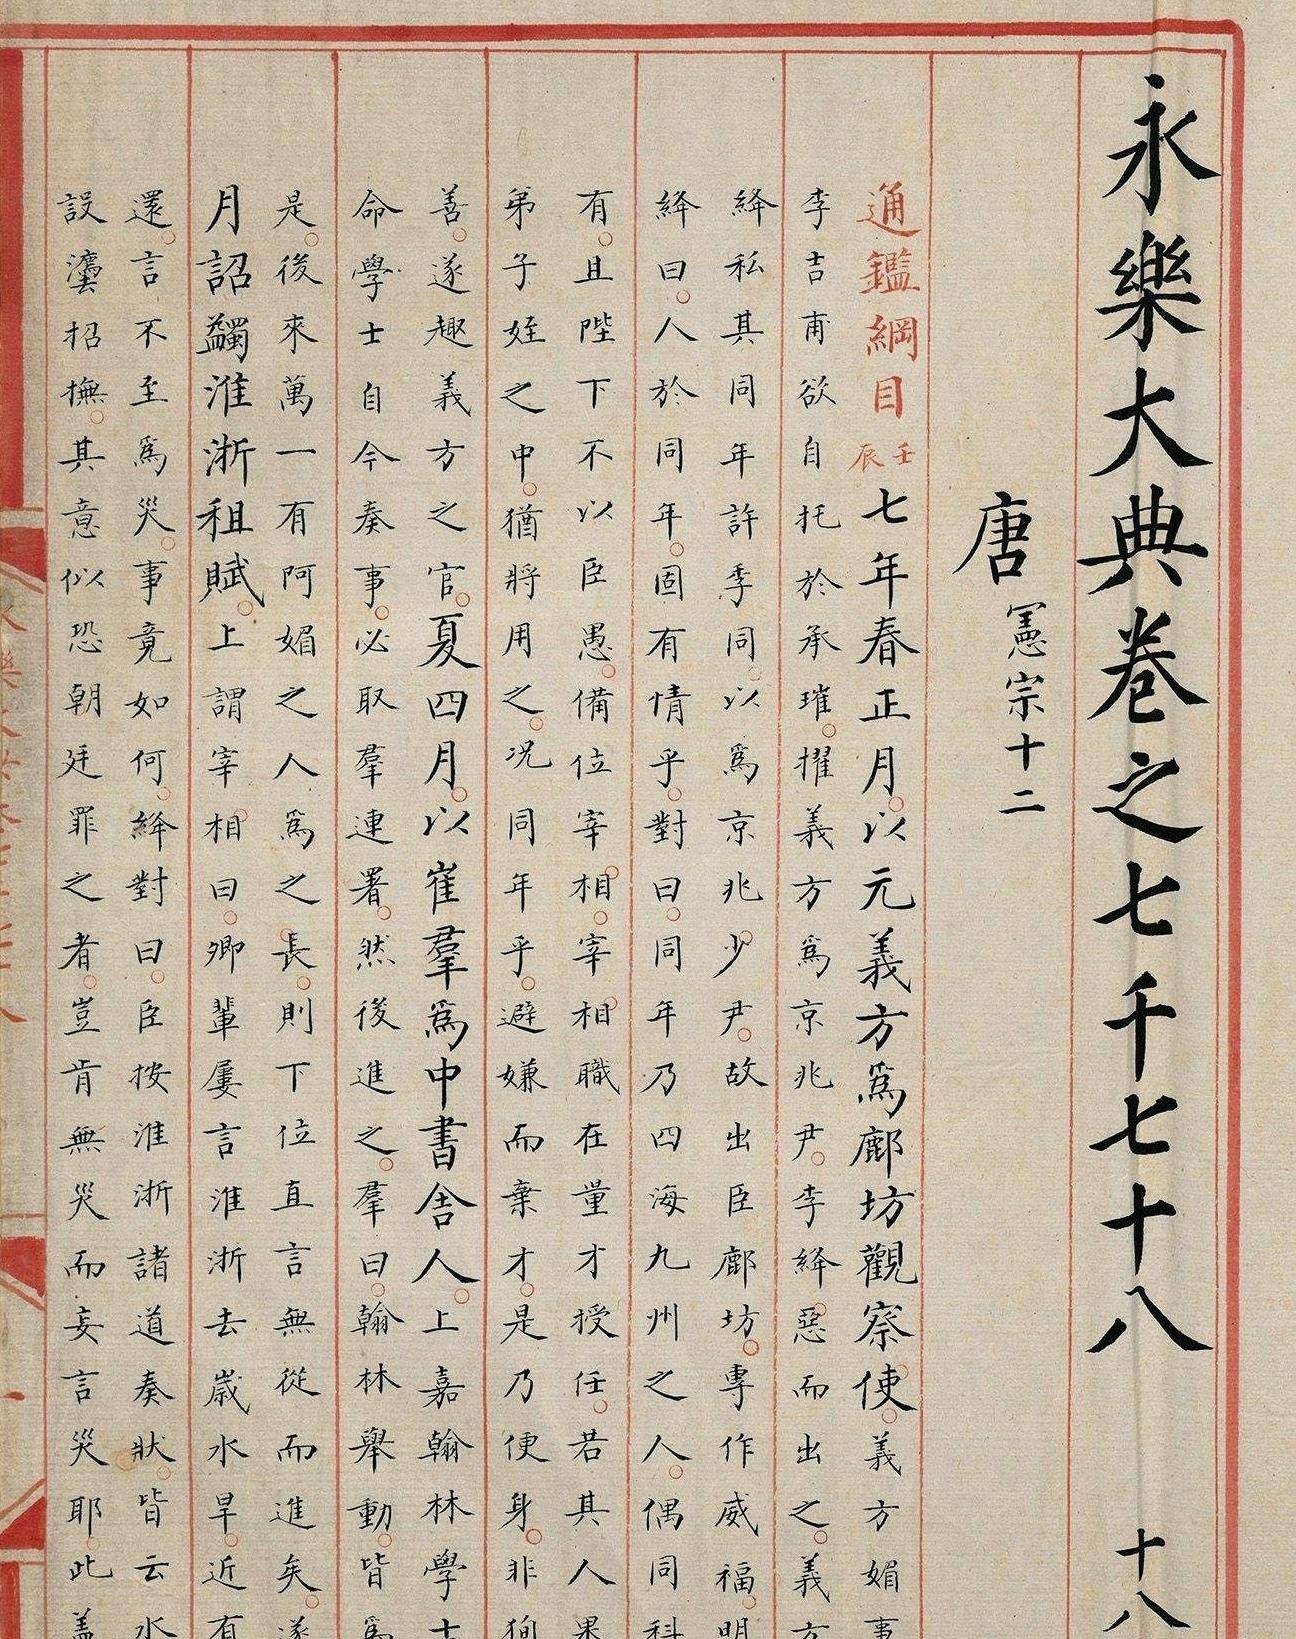 永樂大典卷之七千七十八 十八
唐 憲宗十二
通鑑綱目 壬辰 七年春正月以元義方爲鄜坊觀察使義方媚事
李吉甫欲自托於承璀擢義方爲京兆尹李絳惡而出之義方
絳私其同年許季同以爲京兆少尹故出臣鄜坊專作威福明
絳曰人於同年固有情乎對曰同年乃四海九州之人偶同科
有且陛下不以臣愚備位宰相宰相職在量才授任若其人果
弟子姪之中猶將用之况同年乎避嫌而棄才是乃便身非徇
善遂趣義方之官夏四月以崔羣爲中書舍人上嘉翰林學士
命學士自今奏事必取羣連署然後進之羣曰翰林舉動皆爲
是後來萬一有阿媚之人爲之長則下位直言無從而進矣遂
月詔蠲淮浙租賦上謂宰相曰卿輩屢言淮浙去歲水旱近有
還言不至爲災事竟如何絳對曰臣按淮浙諸道奏狀皆云水
設灋招撫其意似恐朝廷罪之者豈肯無災而妄言災耶此蓋